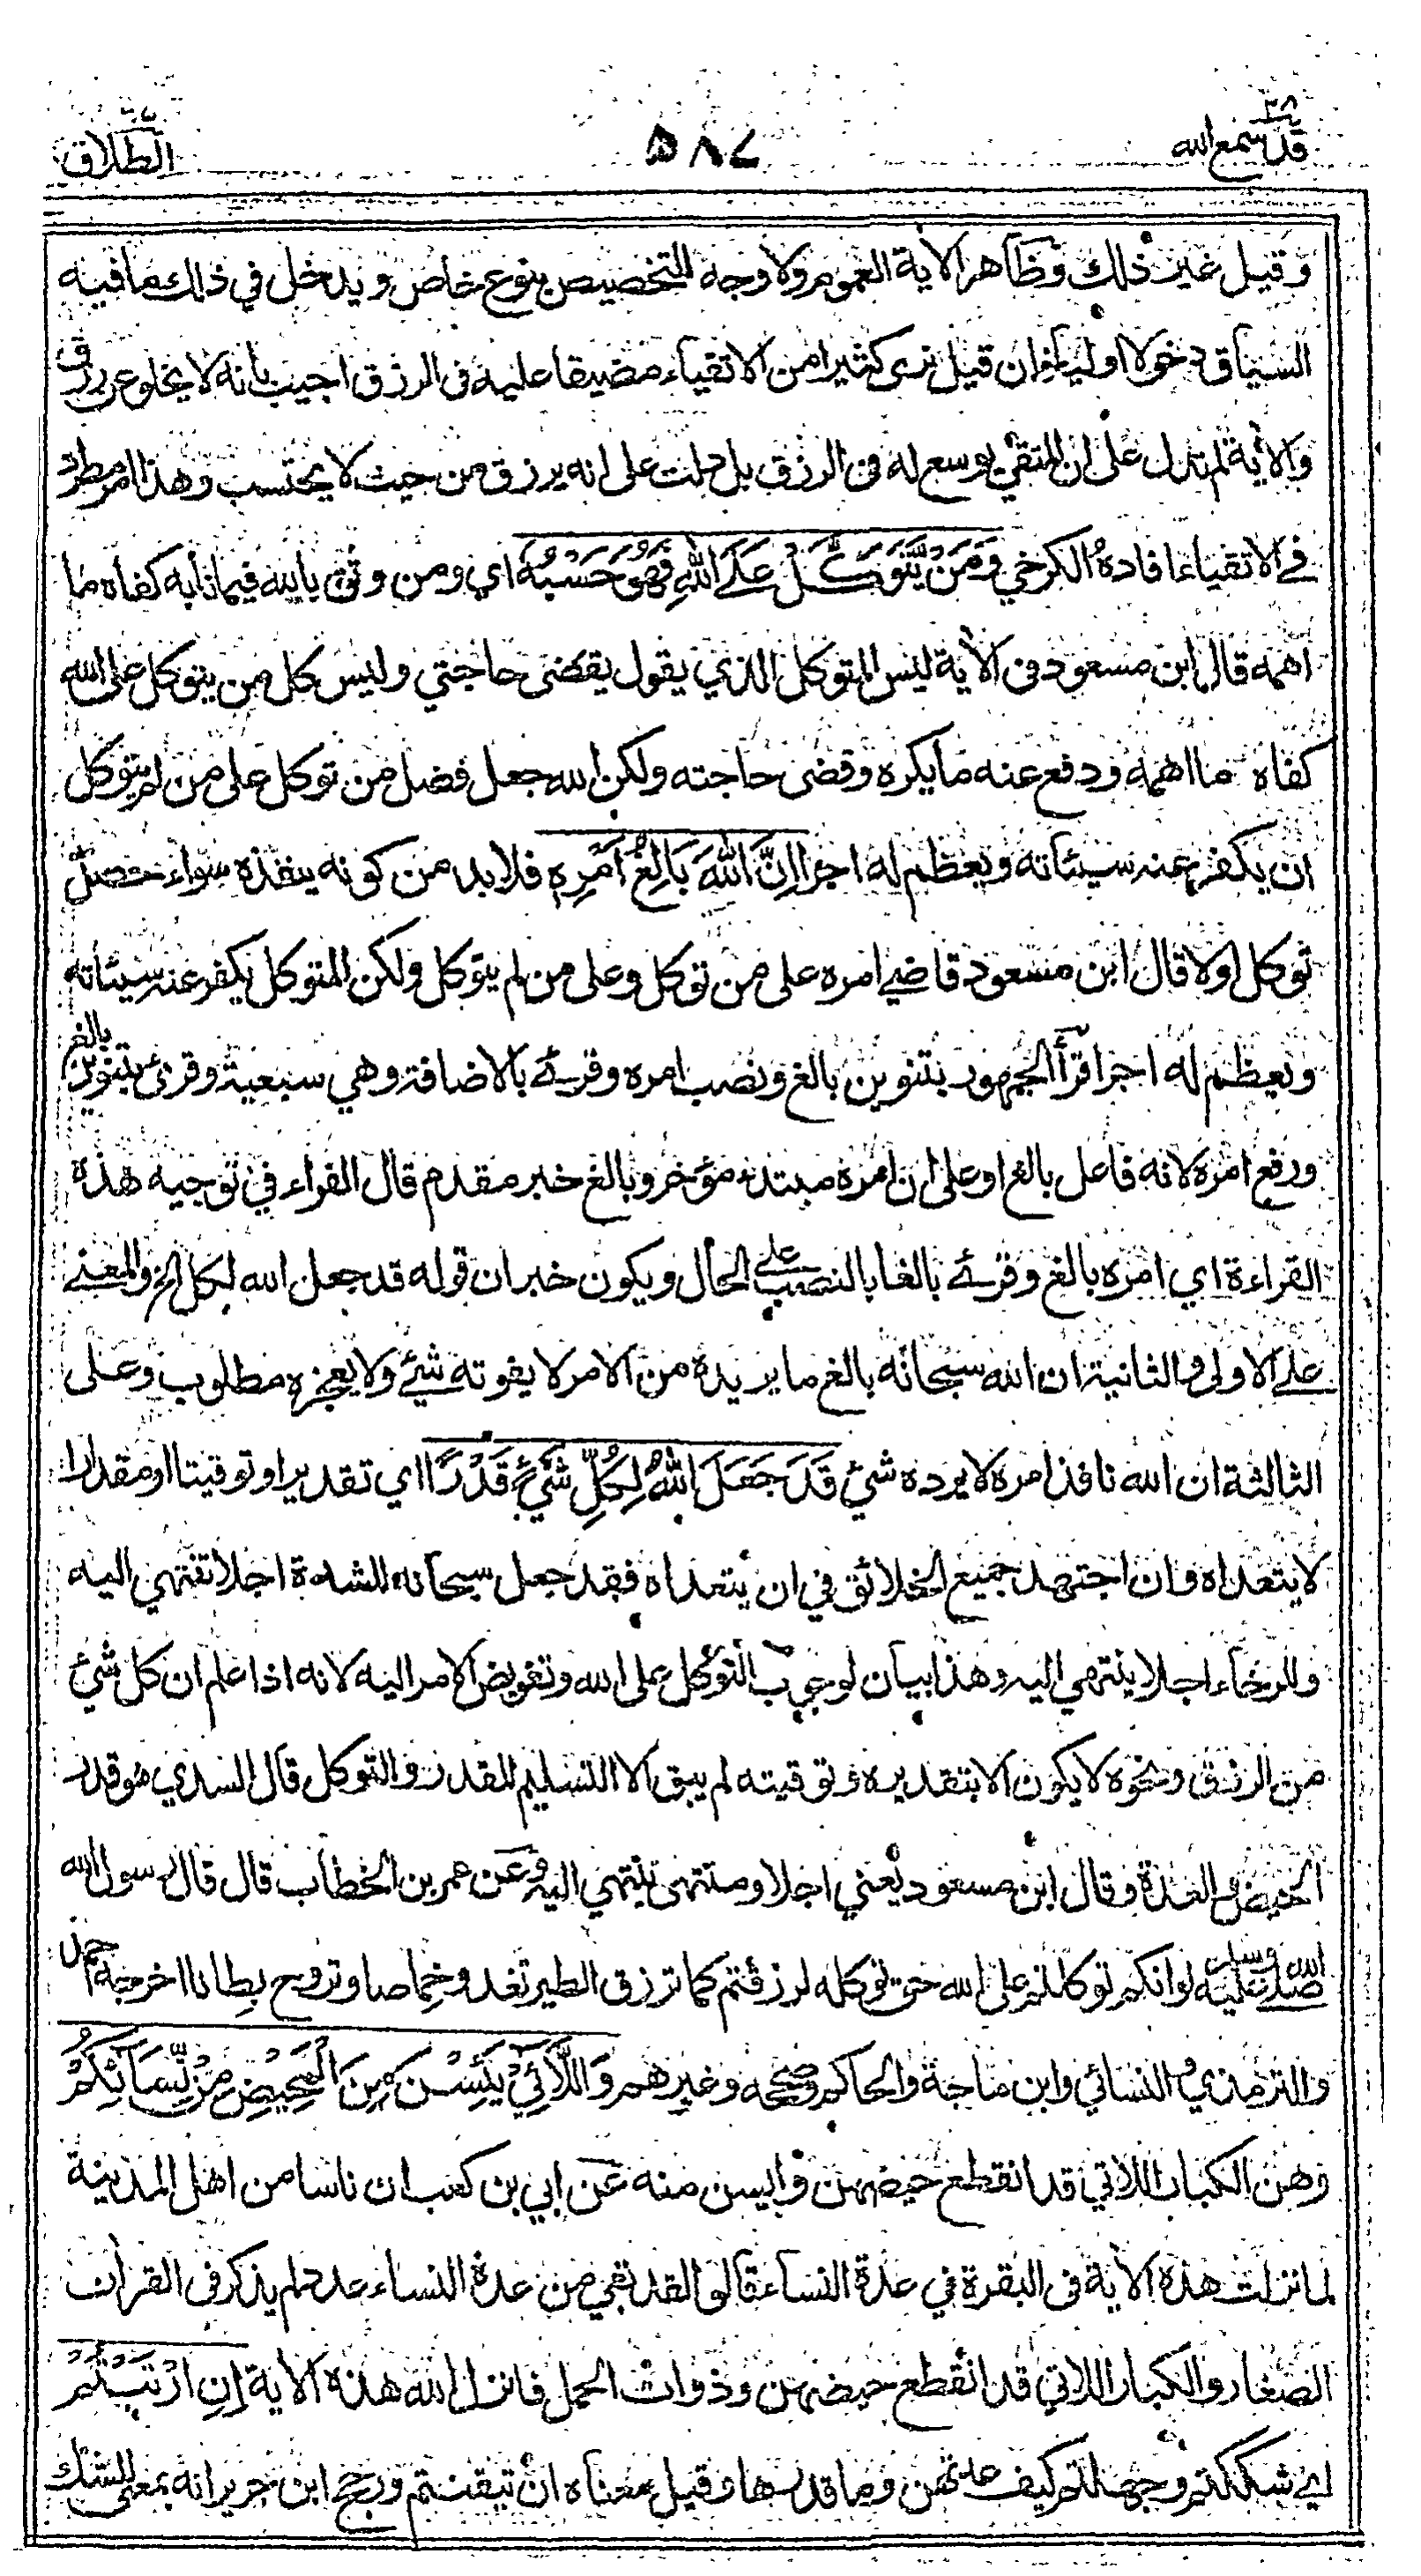 قد سمع الله ٢٨
٥٨٧
الطلاق
وقيل غير ذلك وظاهر الأية العموم ولا وجه للتخصيص بنوع خاص ويدخل في ذلك ما فيه
السياق دخولا اوليا فان قيل نرى كثيرا من الاتقياء مضيقا عليه فى الرزق اجيب بانه لا يخلو عن رزق
والأية لم تدل على ان المتقي يوسع له فى الرزق بل دلت على انه يرزق من حيث لا يحتسب وهذا امر مطرد
في الاتقياء افاده الكرخي وَمَنْ يَّتَوَكَّلْ عَلَى اللّٰهِ فَهُوَ حَسْبُهٗ اي ومن وثق بالله فيما نابه كفاه ما
اهمه قال ابن مسعود فى الأية ليس المتوكل الذي يقول يقضى حاجتي وليس كل من يتوكل على الله
كفاه ما اهمه ودفع عنه ما يكره وقضى حاجته ولكن الله جعل فضل من توكل على من لم يتوكل
ان يكفر عنه سيئاته ويعظم له اجرا اِنَّ اللّٰهَ بَالِغُ اَمْرِهٖ فلا بد من كونه ينفذه سواء حصل
توكل اولا قال ابن مسعود قاضي امره على من توكل وعلى من لم يتوكل ولكن المتوكل يكفر عنه سيئاته
ويعظم له اجرا قرأ الجمهور بتنوين بالغ ونصب امره وقرئ بالاضافة وهي سبعية وقرئ بتنوين بالغ
ورفع امره لانه فاعل بالغ او على ان امره مبتدء مؤخر وبالغ خبر مقدم قال الفراء في توجيه هذه
القراءة اي امره بالغ وقرئ بالغا بالنصب على الحال ويكون خبر ان قوله قد جعل الله لكل الخ والمعنى
على الاولى والثانية ان الله سبحانه بالغ ما يريده من الامر لا يفوته شيئ ولا يعجزه مطلوب وعلى
الثالثة ان الله نافذ امره لا يرده شيئ قَدْ جَعَلَ اللّٰهُ لِكُلِّ شَيْءٍ قَدْرًا اي تقديرا وتوقيتا او مقدارا
لا يتعداه وان اجتهد جميع الخلائق في ان يتعداه فقد جعل سبحانه للشدة اجلا تنتهي اليه
وللرخاء اجلا ينتهي اليه وهذا بيان لوجوب التوكل على الله وتفويض الامر اليه لانه اذا علم ان كل شيئ
من الرزق ونحوه لا يكون الا بتقديره وتوقيته لم يبق الا التسليم للقدر والتوكل قال السدي هو قدر
الحيض والعدة وقال ابن مسعود يعني اجلا ومنتهى ينتهي اليه وعن عمر بن الخطاب قال قال رسول الله
صلى الله عليه وسلم لو انكم توكلتم على الله حق توكله لرزقتم كما ترزق الطير تغدو خماصا وتروح بطانا اخرجه احمد
والترمذي والنسائي وابن ماجة والحاكم وصححه وغيرهم وَاللَّائِيْ يَئِسْنَ مِنَ الْمَحِيْضِ مِنْ نِّسَآئِكُمْ
وهن الكبار اللاتي قد انقطع حيضهن وايسن منه عن ابي بن كعب ان ناسا من اهل المدينة
لما نزلت هذه الأية فى البقرة في عدة النساء قالوا لقد بقي من عدة النساء عدد لم يذكر فى القرأن
الصغار والكبار اللاتي قد انقطع حيضهن وذوات الحمل فانزل الله هذه الأية اِنِ ارْتَبْتُمْ
اي شككتم وجهلتم كيف عدتهن وما قدرها وقيل معناه ان تيقنتم ورجح ابن جرير انه بمعنى الشك